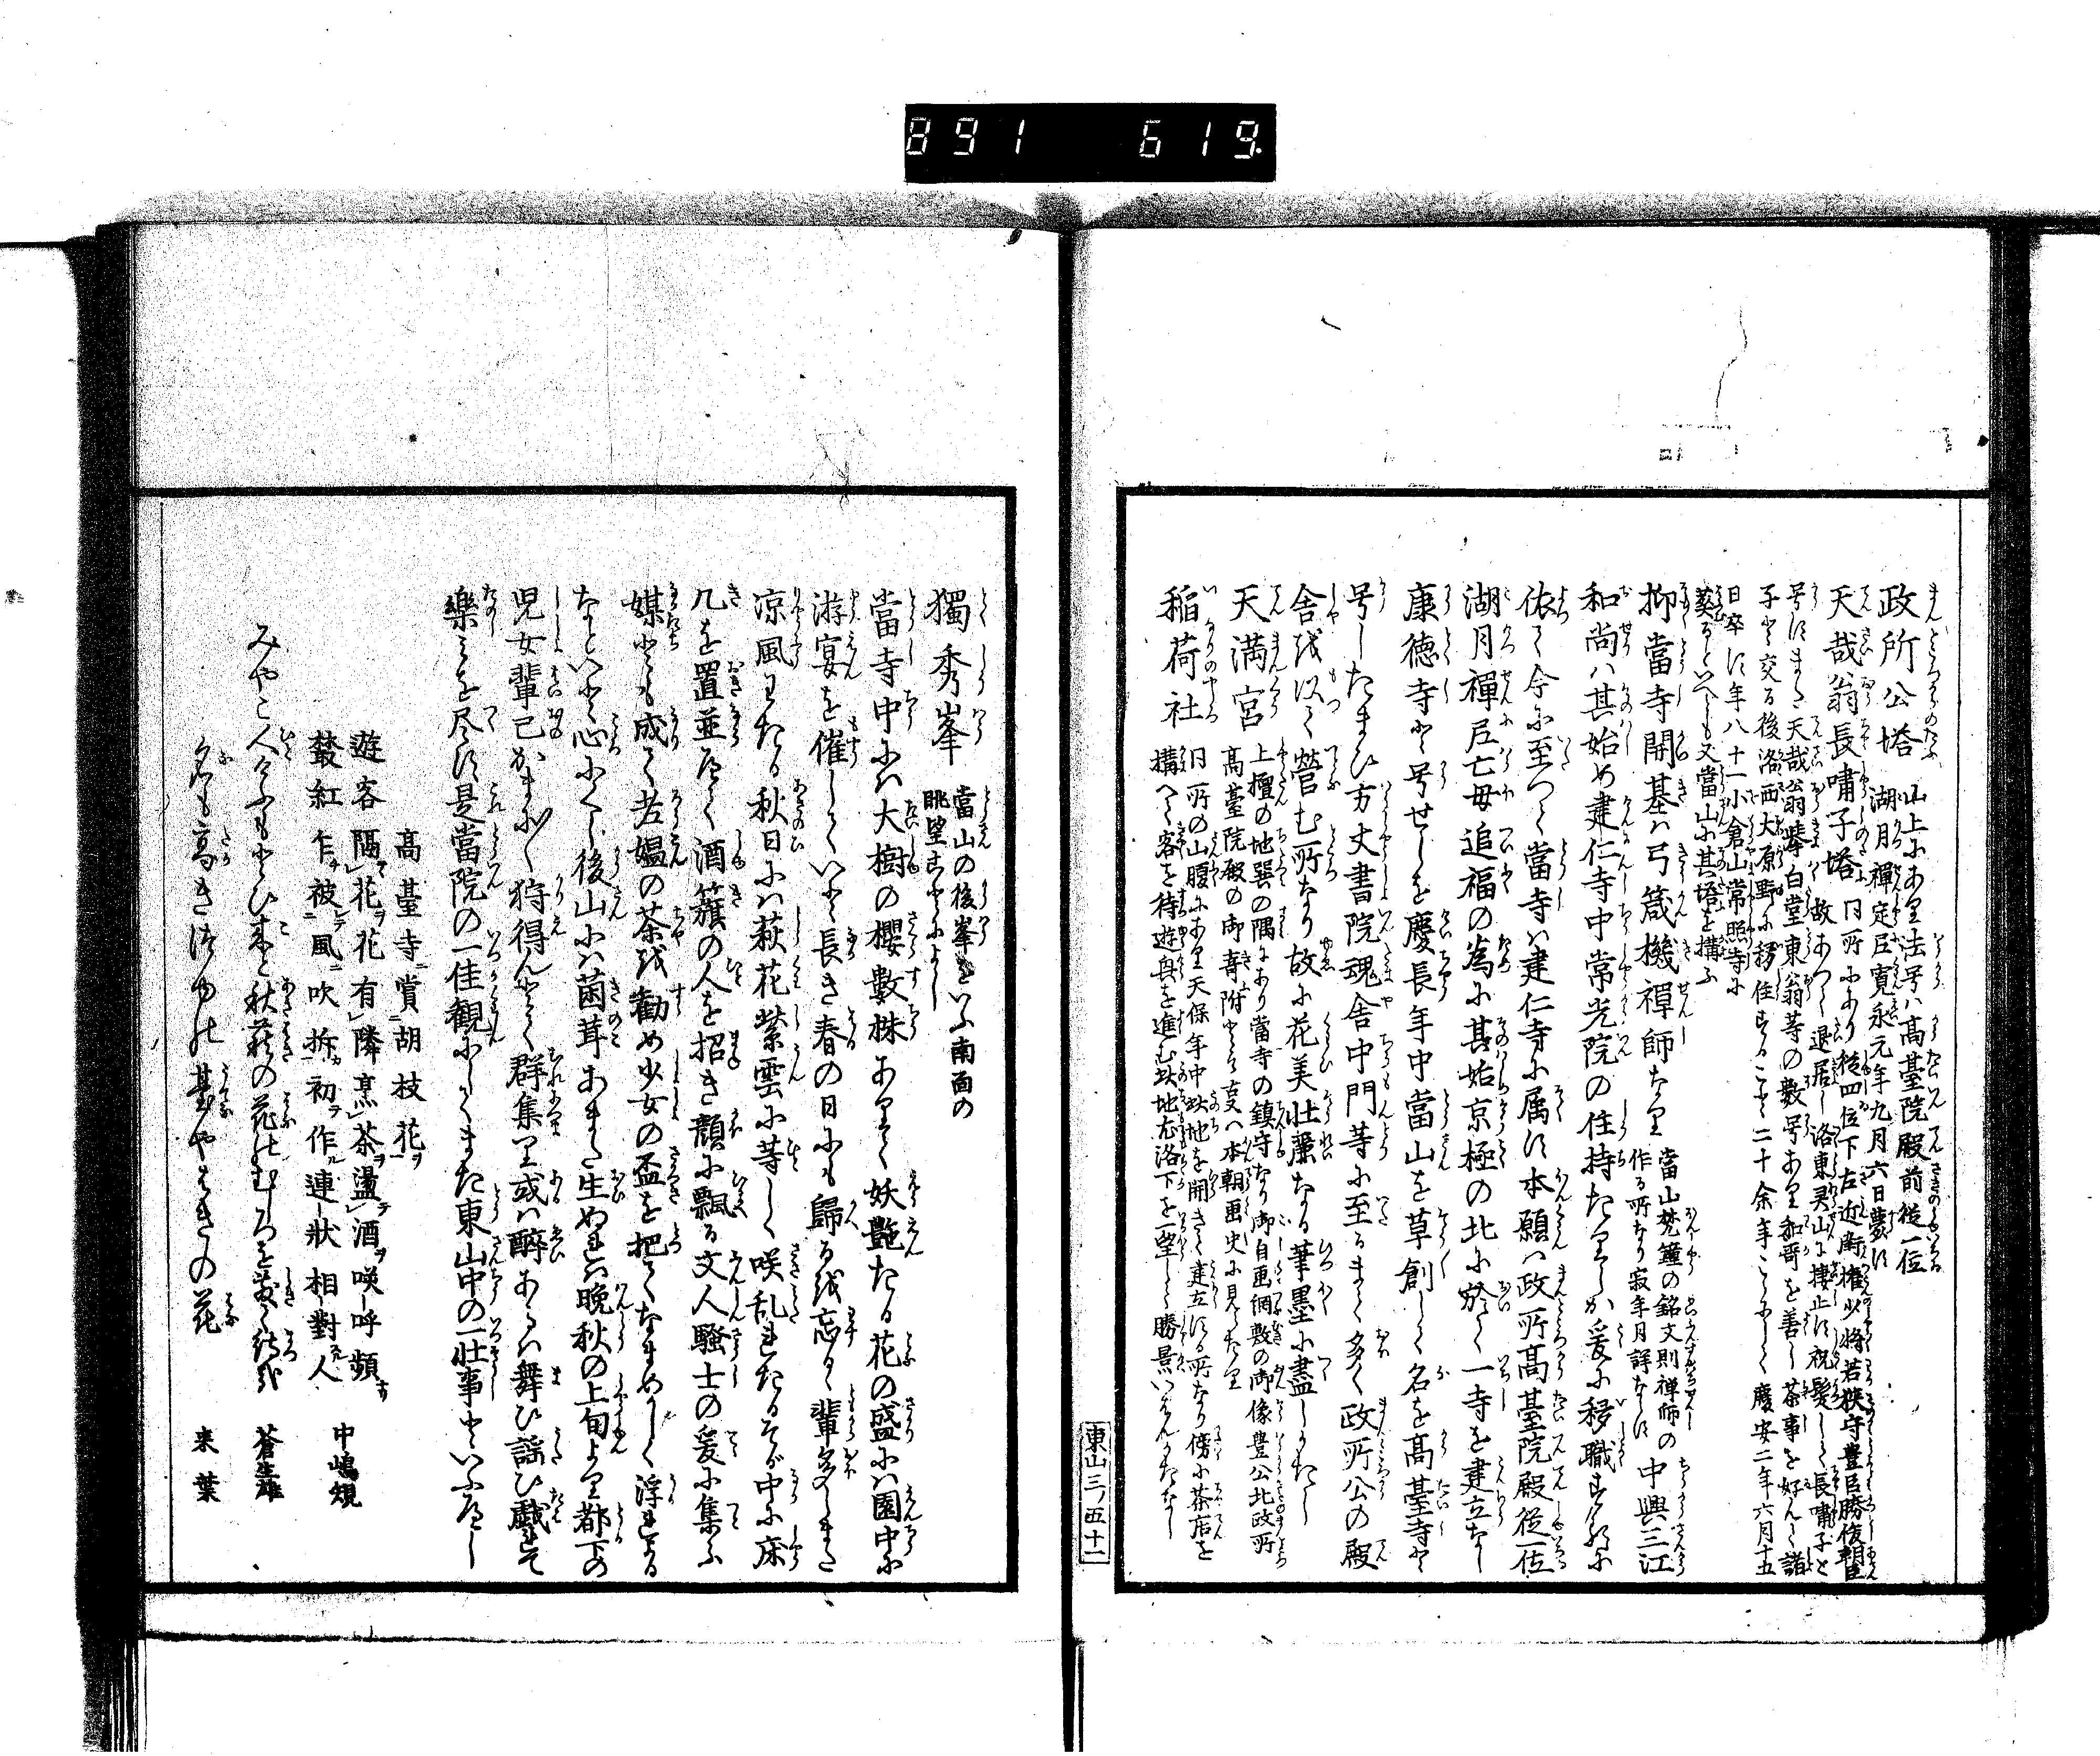 891 619.
政所公塔 山上にあり法号ハ高臺院殿前従一位
湖月禪定尼寛永元年九月六日薨ず
天哉翁長嘯子塔 同所にあり従四位下左近衛権少将若狭守豊臣勝俊朝臣
故あつて退居し洛東灵山に棲止ず祝髪して長嘯子と
号すまた天哉翁夢白堂東翁等の数号あり和哥を善し茶事を好んで諸
子と交る後洛西大原野に移住することニ十余年ことにして慶安二年六月十五
日卒ず年八十一小倉山常照寺に
葬るといへども又當山に其塔を構ふ
抑當寺開基ハ弓箴機禪師なり 當山梵鐘の銘文則禅師の
作る所なり寂年月詳ならず 中興三江
和尚ハ其始め建仁寺中常光院の住持たりしか爰に移職すゆゑに
依て今に至つて當寺ハ建仁寺に属す本願ハ政所高臺院殿従一位
湖月禪尼亡母追福の為に其始京極の北に於て一寺を建立なし
康徳寺と号せしを慶長年中當山を草創して名を高臺寺と
号したまひ方丈書院魂舎中門等に至るまで多く政所公の殿
舎を以て營む所なり故に花美壮麗なる筆墨に盡しがたし
天満宮 上檀の地巽の隅にあり當寺の鎮守なり御自画網敷の御像豊公北政所
高臺院殿の御寄附といふ支ハ本朝画史に見えたり
稲荷社 同所の山腹にあり天保年中此地を開きて建立する所なり傍に茶店を
構へて客を待遊興を進む此地尤洛下を一望して勝景いはんかたなし
東山三ノ五十二
獨秀峯 當山の後峯をいふ南面の
眺望ことによし
當寺中にハ大樹の櫻數株ありて妖艶たる花の盛にハ園中に
游宴を催していと長き春の日にも歸るを忘るゝ輩多しまた
凉風わたる秋日にハ萩花紫雲に等しく咲乱れたるそが中に床
几を置並べて酒籏の人を招き顔に飄る文人騒士の爰に集ふ
媒とも成て老媼の茶を勸め少女の盃を把てなまめかしく浮れよる
なといと心にくし後山にハ菌茸あまた生ぬれハ晩秋の上旬より都下の
児女輩己がまに〱狩得んとて群集し或ハ醉あるハ舞ひ謡ひ戯れて
樂しみを尽す是當院の一佳観にしてまた東山中の一壮事といふべし
高臺寺ニ賞胡枝花ヲ
遊客隔テ花ヲ花有隣烹茶ヲ盪テ酒ヲ咲呼頻ナリ
叢紅乍被レテ風ニ吹拆初ヲ作ル連状相對スル人 中嶋規
みやこ人けふもとひ来て秋萩の花のむしろを敷つ 蒼生雄
名も高きつゆの臺やはぎの花 来葉